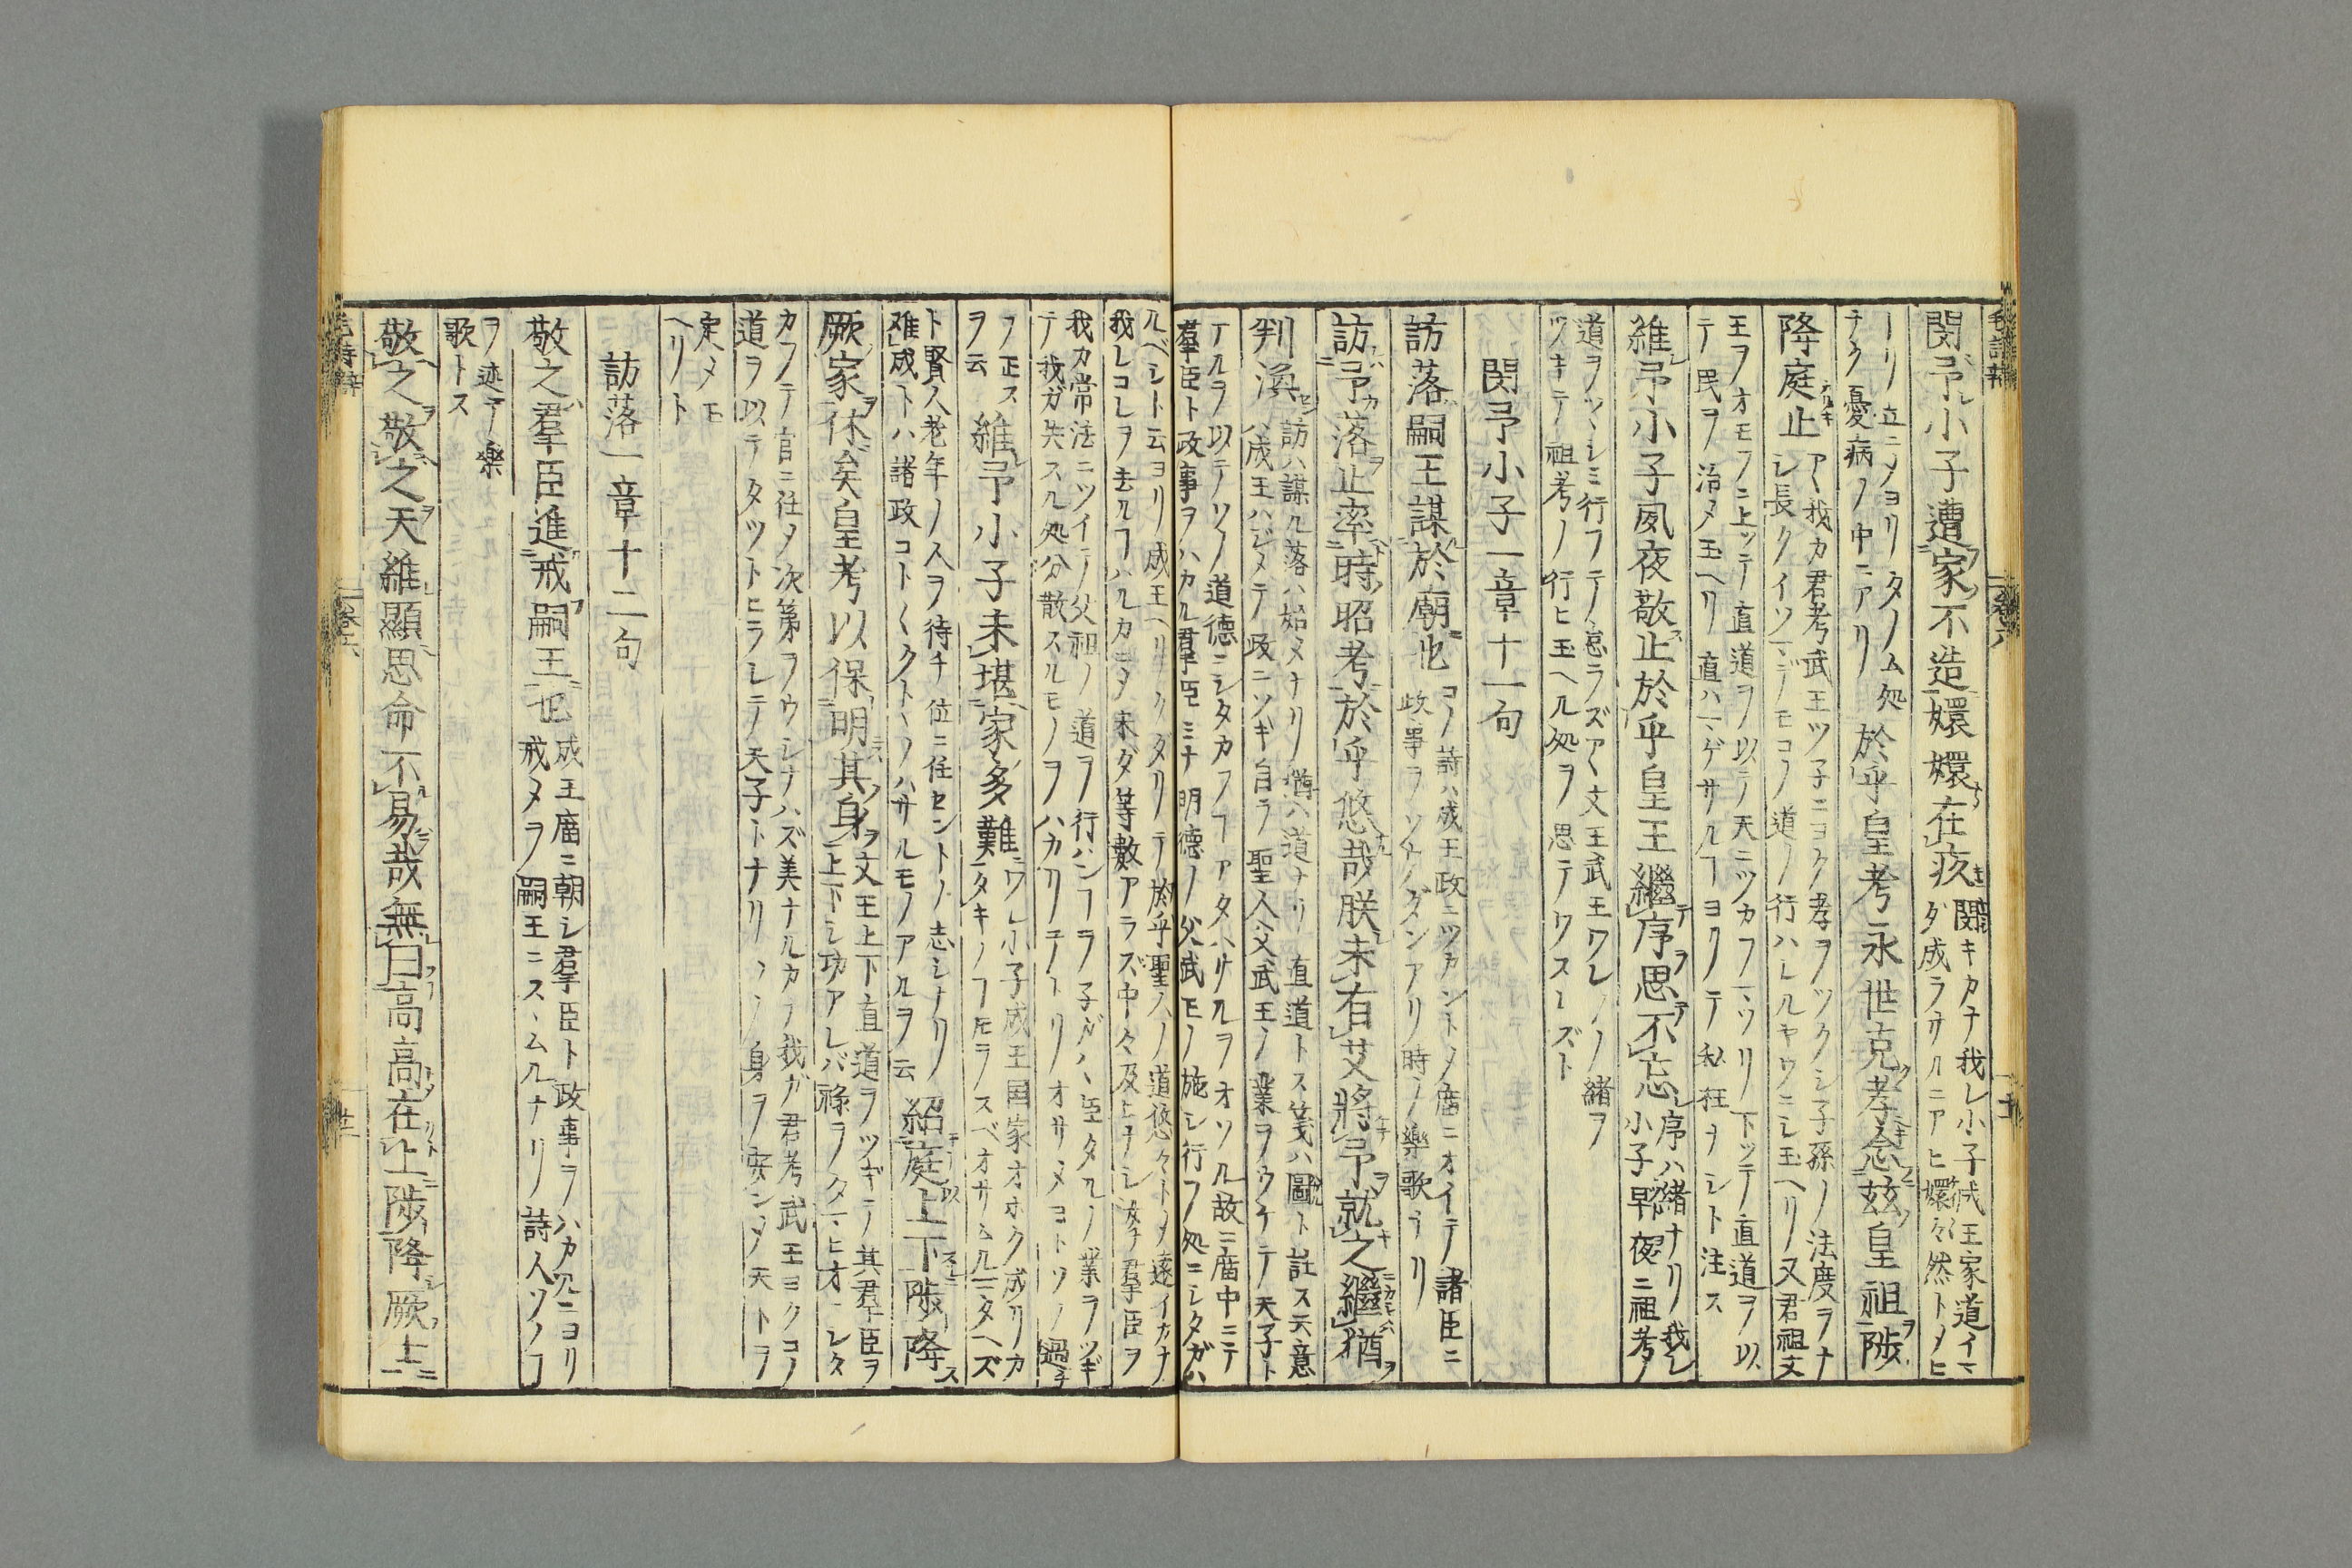 閔予小子遭家不造嬛嬛在疚
閔キカナ我レ小子成王家道イマ
ダ成ラサルニアヒ嬛々然トメヒ
ーリ立ニノヨリタノム処
ナク憂病ノ中ニアリ
於乎皇考永世克孝念茲皇祖陟
降庭止
アヽ我カ君考武王ツ子ニヨク孝ヲツクシ子孫ノ法度ヲナ
シ長クイツマデノモコノ道ノ行ハレルヤウニシ玉ヘリ又君祖文
王ヲオモフニ上ッテ直道ヲ以テ天ニツカフマツリ下ッテ直道ヲ以
テ民ヲ治メ玉ヘリ直ハマゲサルヿヨクテ私枉ナシト注ス
維予小子夙夜敬止於乎皇王繼序思不忘
序ハ緒ナリ我レ
小子早夜ニ祖考ノ
道ヲツヽシミ行フテ怠ラズアヽ文王武王ワレソノ緒ヲ
ツキテ祖考ノ行ヒ玉ヘル処ヲ思テワスレズト
閔予小子一章十一句
訪落嗣王謀於廟也
コノ詩ハ成王政ニツカントメ廟ニオイテ諸臣ニ
政事ヲソウダンアリ時ノ樂歌ナリ
訪予落止率時昭考於乎悠哉朕未有艾將予就之繼猶
判渙
訪ハ謀ル落ハ始メナリ猶ハ道ナリ直道トス箋ハ圖ト註ス天意
ハ成王ハジメテ政ニツギ自ラ聖人父武王ノ業ヲウケテ天子ト
テルヲ以テソノ道德ニシタカフヿアタハサルヲオソル故ニ廟中ニテ
羣臣ト政事ヲハカル羣臣ミナ明德ノ父武王ノ施シ行フ処ニシタガハ
ルベシト云ヨリ成王ヘリクダリテ於乎聖人ノ道悠々トメ遠イカナ
我レコレヲ去ルヿハルカニメ未ダ等數アラズ中々及ヒナシ羣臣ヲ
我カ常法ニツイテ父祖ノ道ヲ行ハンヿヲ子ガハヽ臣タルノ業ヲツギ
テ我ガ失スル処分散スルモノヲハカリテトリオサメヨトソノ過チ
ヲ正ス
ヲ云
維予小子未堪家多難
ワレ小子成王国家オホク成リカ
タキノヿ凡ラノスベオサムルニタヘズ
ト賢人老年ノ人ヲ待チ位ニ任セントノ志シナリ
难成トハ諸政コト〱クトヽノハサルモノアルヲ云
紹庭上下陟降
厥家休矣皇考以保明其身
文王上下直道ヲツギテ其羣臣ヲ
上下シ功アレバ祿ヲタマヒオコレタ
カフテ官ニ任メ次第ヲウシナハズ美ナルカナ我ガ君考武王ヨクコノ
道ヲ以テタツトヒラレテ天子トナリソノ身ヲ安ンメ天トヲ
定メモ
ヘリト
訪落一章十二句
敬之羣臣進戒嗣王也
成王廟ニ朝シ羣臣ト政事ヲハカルニヨリ
戒メヲ嗣王ニスヽムルナリ詩人ソノヿ
ヲ述テ樂
歌トス
敬之敬之天維顯思命不易哉無曰高高在上陟降厥士